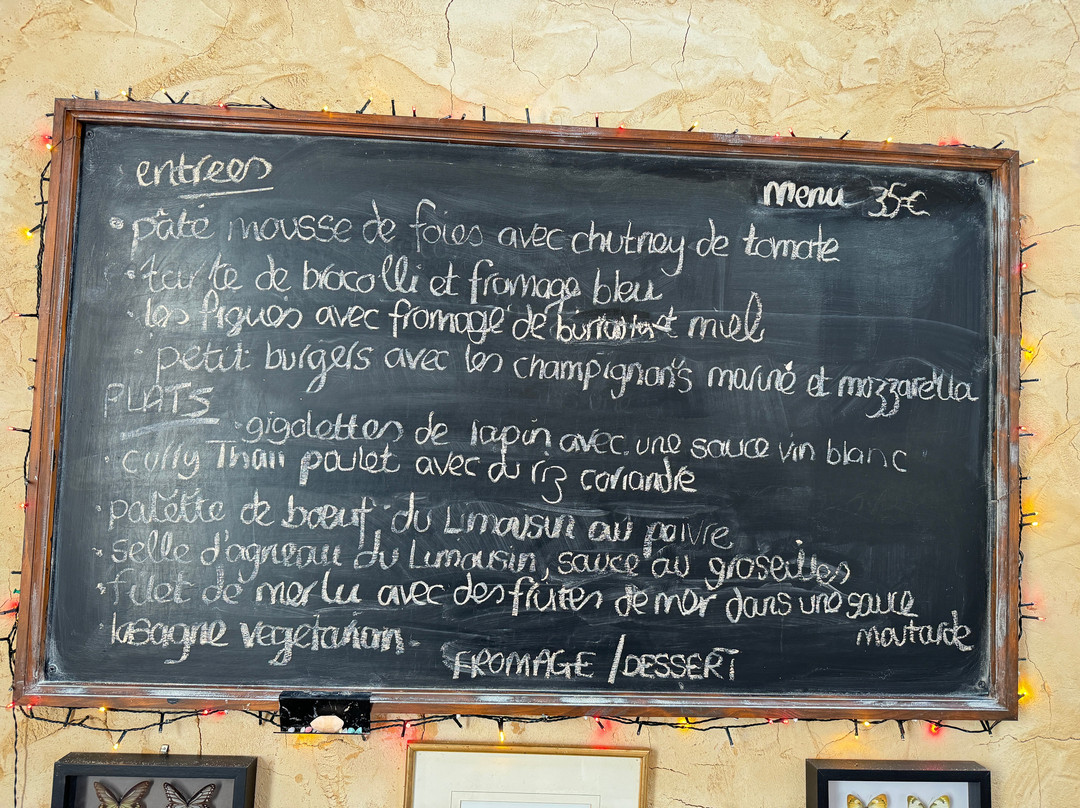 entrees
menu 35€
• pâté mousse de foies avec chutney de tomate
• tarte de brocolli et fromage bleu
• les figues avec fromage de burrata et miel
• petit burgers avec les champignons mariné et mozzarella
PLATS
• gigolettes de lapin avec une sauce vin blanc
• curry Thaii poulet avec du riz coriandre
• palette de bœuf du Limousin au poivre
• selle d'agneau du Limousin, sauce au groseilles
• filet de merlu avec des frutes de mer dans une sauce
moutarde
• lasagne vegetarian.
FROMAGE / DESSERT